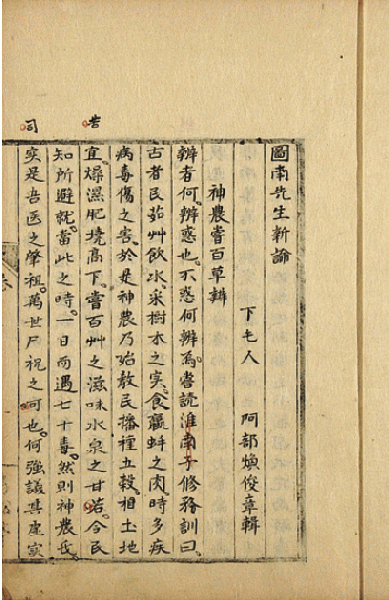 圖南先生新論
下毛人 阿部煥俊章輯
神農嘗百草辨
辨者何。辨惑也。不惑何辨為。嘗読淮南子修務訓曰。
古者民茹艸飲水。采樹木之実。食蠃蚌之肉。時多疾
病毒傷之害。於是神農乃始教民播種五穀。相土地
宜。燥濕肥境高下。嘗百艸之滋味水泉之甘若。令民
知所避就。當此之時。一日而遇七十毒。然則神農氏
实是吾医之肇祖。萬世尸祝之可也。何強議其虚实
苦
司